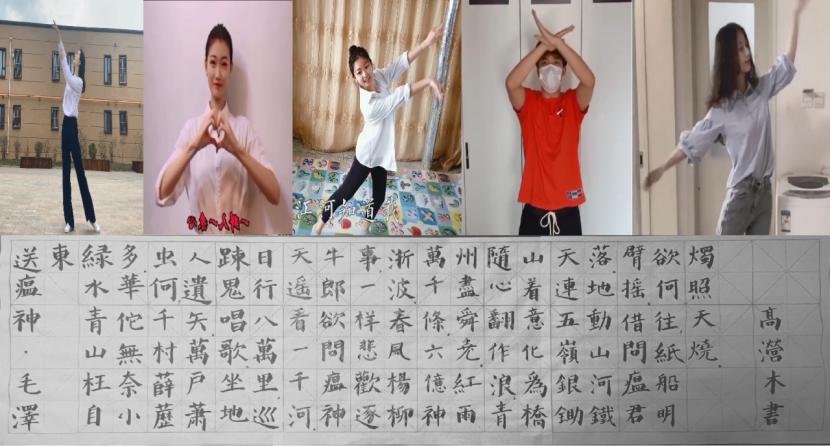 江河知道
送瘟神·毛澤
東
緑水青山枉自
多華佗無奈小
虫何千村薜藶
人遺矢萬户蕭
踈鬼唱歌坐地
日行八萬里巡
天遥看一千河
牛郎欲問瘟神
事一様悲歡逐
浙波春風楊柳
萬千條六億神
州盡舜堯紅雨
隨心翻作浪青
山着意化為橋
天連五嶺銀鋤
落地動山河鐵
臂摇借問瘟君
欲何往紙船明
燭照天燒
高瀅木書